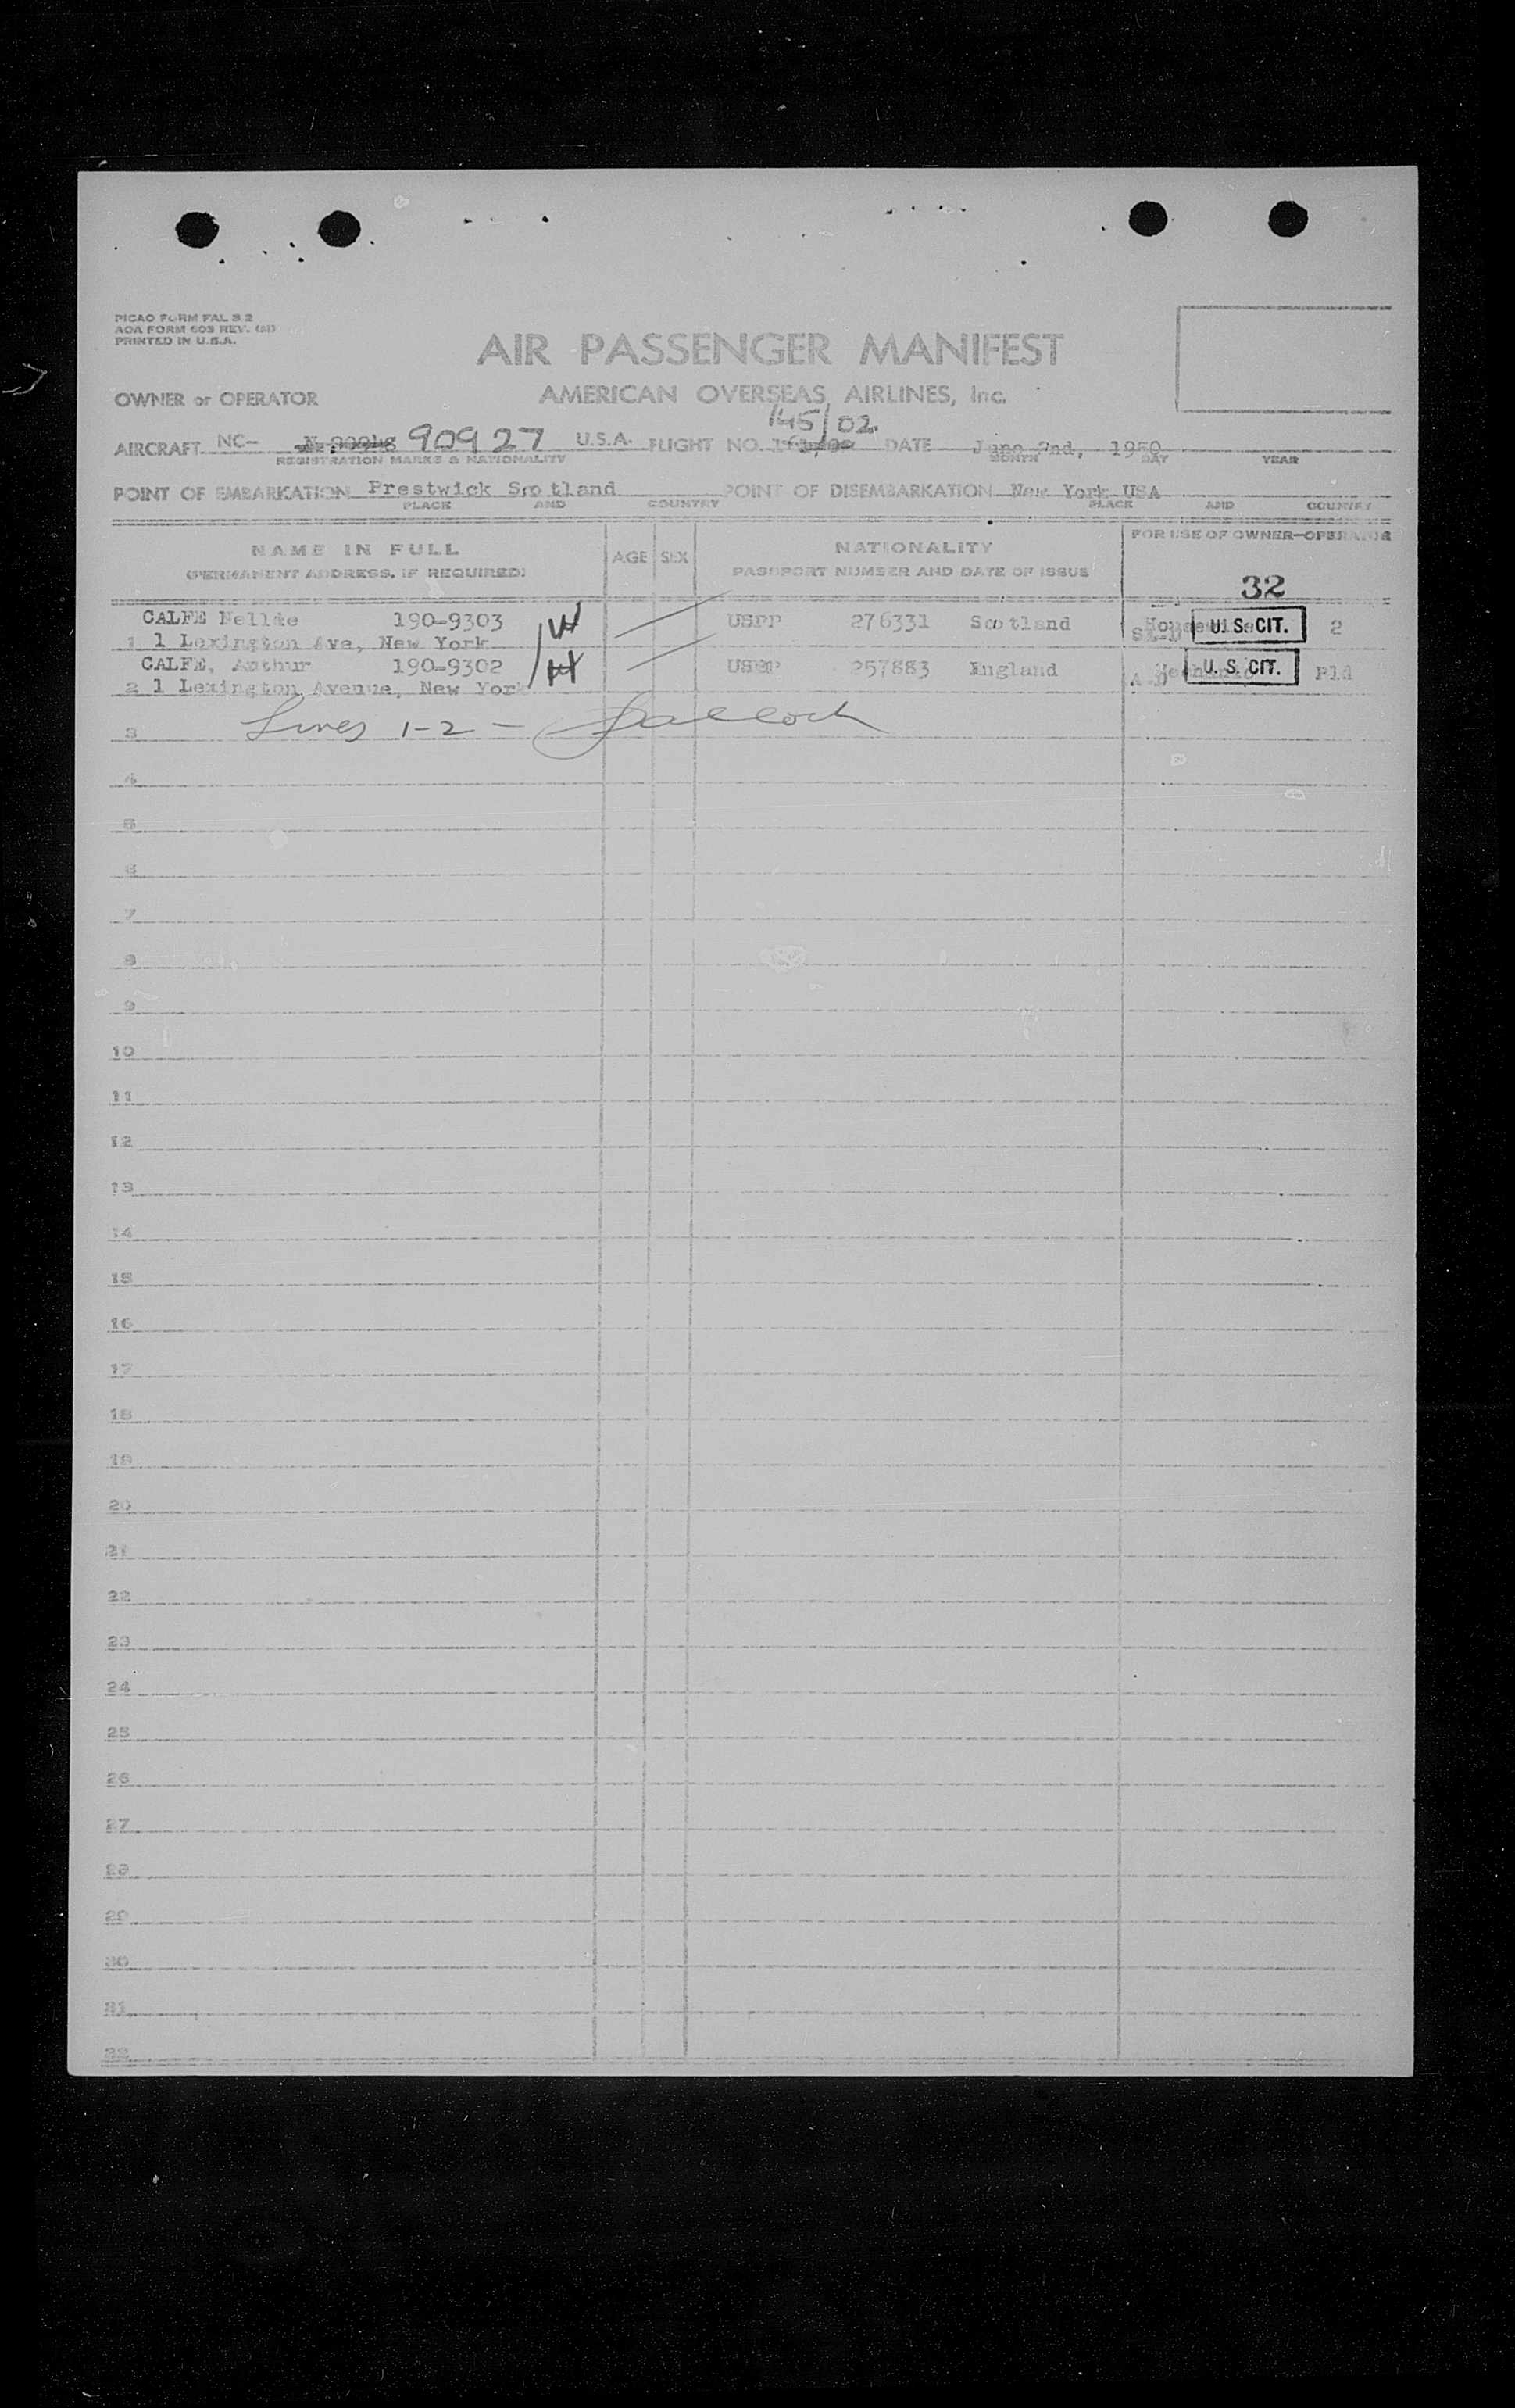 PICAO FORM FAL 3 2
AOA FORM 603 REV.
PRINTED IN U.S.A.
AIR PASSENGER MANIFEST
OWNER or OPERATOR AMERICAN OVERSEAS AIRLINES, Inc.
145/02.
AIRCRAFT NC- 90927 U.S.A. FLIGHT NO. DATE June 2nd, 1950
REGISTRATION MARKS & NATIONALITY MONTH DAY YEAR
POINT OF EMBARKATION Prestwick Scotland POINT OF DISEMBARKATION New York USA
PLACE AND COUNTRY PLACE AND COUNTRY
NAME IN FULL AGE SEX NATIONALITY FOR USE OF OWNER-OPERATOR
(PERMANENT ADDRESS, IF REQUIRED) PASSPORT NUMBER AND DATE OF ISSUE
32
CALFE Nellie 190-9303 USPP 276331 Scotland Housewife U. S. CIT. 2
1 1 Lexington Ave, New York
CALFE, Arthur 190-9302 USPP 257883 England U. S. CIT.
2 1 Lexington Avenue, New York
3 Lines 1-2 -
4
5
6
7
8
9
10
11
12
13
14
15
16
17
18
19
20
21
22
23
24
25
26
27
28
29
30
31
32